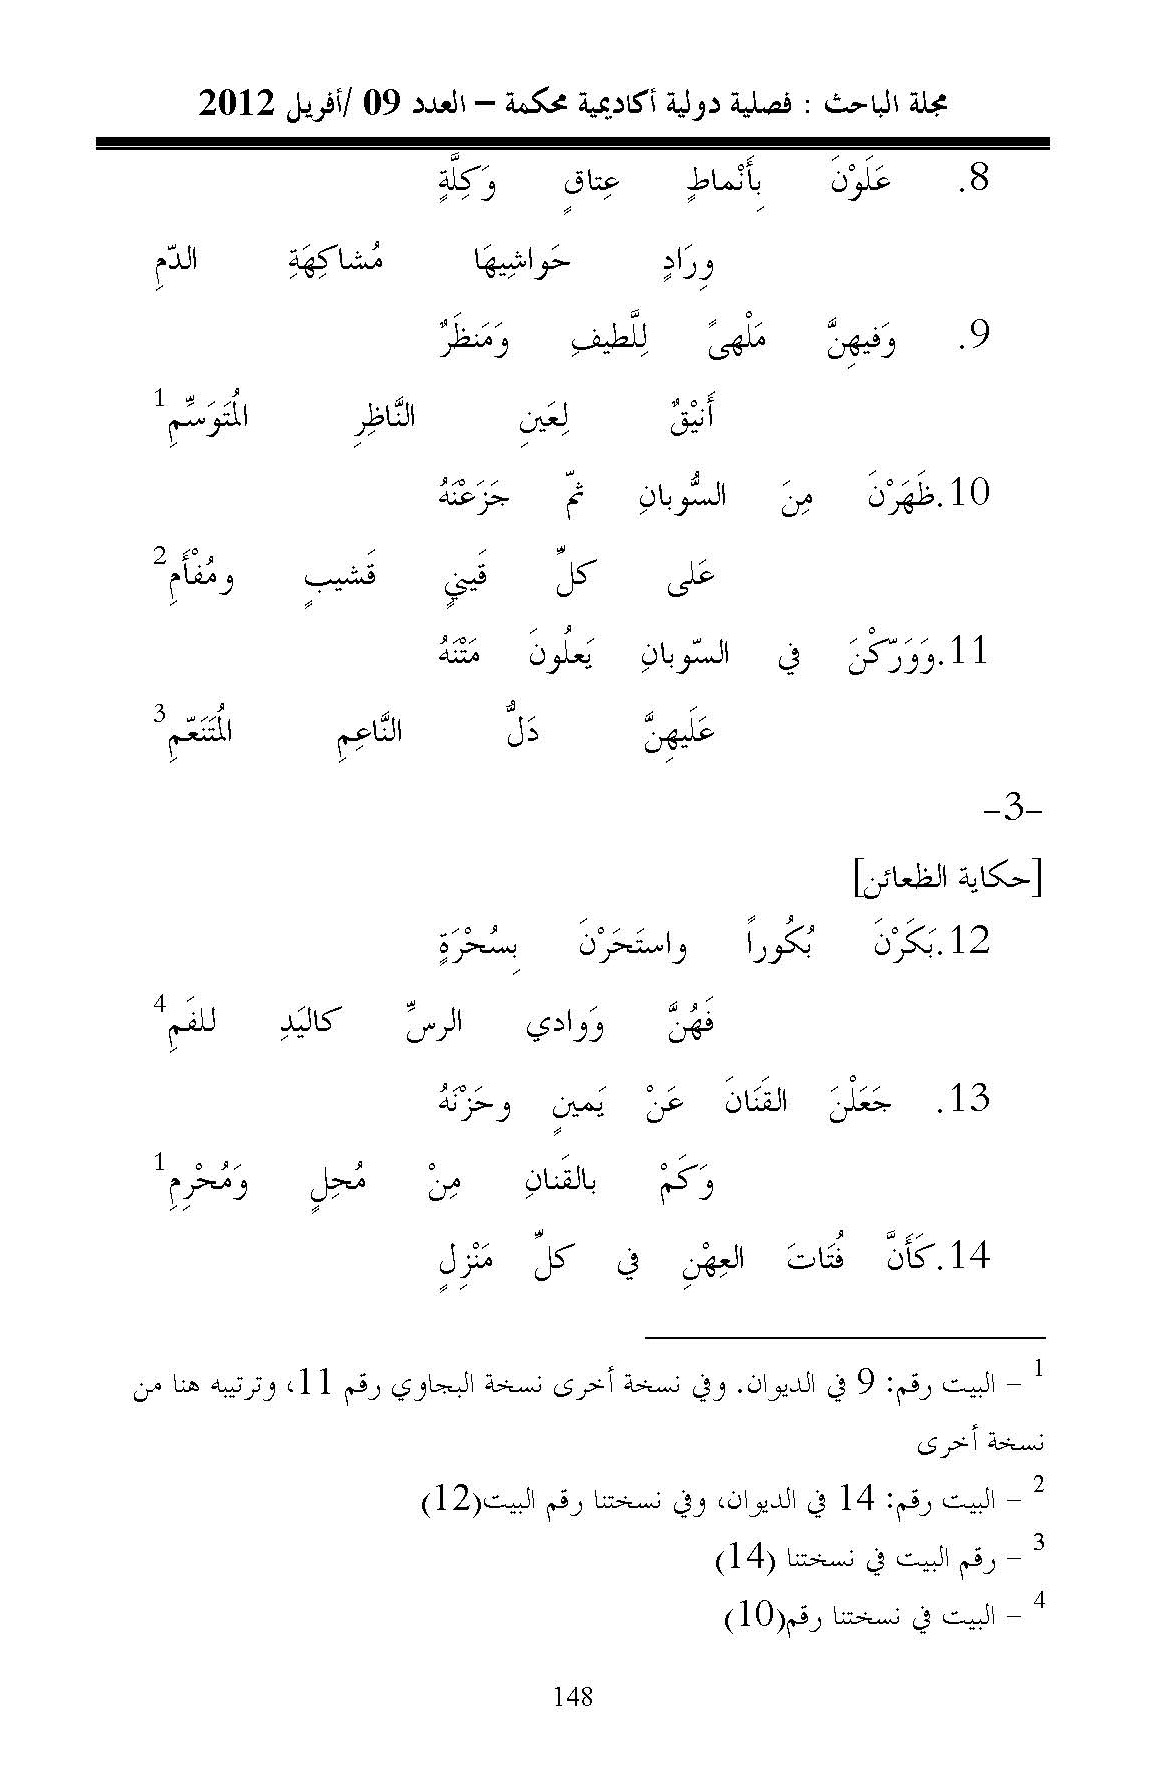 مجلة الباحث : فصلية دولية أكاديمية محكمة – العدد 09 /أفريل 2012
8. عَلَوْنَ بِأَنْماطٍ عِتاقٍ وَكِلَّةٍ
وِرَادٍ حَواشِيهَا مُشاكِهَةِ الدّمِ
9. وَفيهِنَّ مَلْهىً لِلَّطيفِ وَمَنظَرٌ
أَنْيقٌ لِعَينِ النَّاظِرِ المُتَوَسِّمِ1
10.ظَهَرْنَ مِنَ السُّوبانِ ثمّ جَزَعْنَهُ
عَلى كلِّ قَينيٍ قَشيبٍ ومُفْأَمِ2
11.وَوَرّكْنَ في السّوبانِ يَعلُونَ مَتْنَهُ
عَلَيهِنَّ دَلُّ النَّاعِمِ المُتَنَعّمِ3
-3-
[حكاية الظعائن]
12.بَكَرْنَ بُكُوراً واستَحَرْنَ بِسُحْرَةٍ
فَهُنَّ وَوادي الرسِّ كاليَدِ للفَمِ4
13. جَعَلْنَ القَنَانَ عَنْ يَمينٍ وحَزْنَهُ
وَكَمْ بالقَنانِ مِنْ مُحِلٍ وَمُحْرِمِ1
14.كَأَنَّ فُتَاتَ العِهْنِ في كلِّ مَنْزِلٍ
1 – البيت رقم: 9 في الديوان. وفي نسخة أخرى نسخة البجاوي رقم 11، وترتيبه هنا من
نسخة أخرى
2 – البيت رقم: 14 في الديوان، وفي نسختنا رقم البيت(12)
3 – رقم البيت في نسختنا (14)
4 – البيت في نسختنا رقم(10)
148